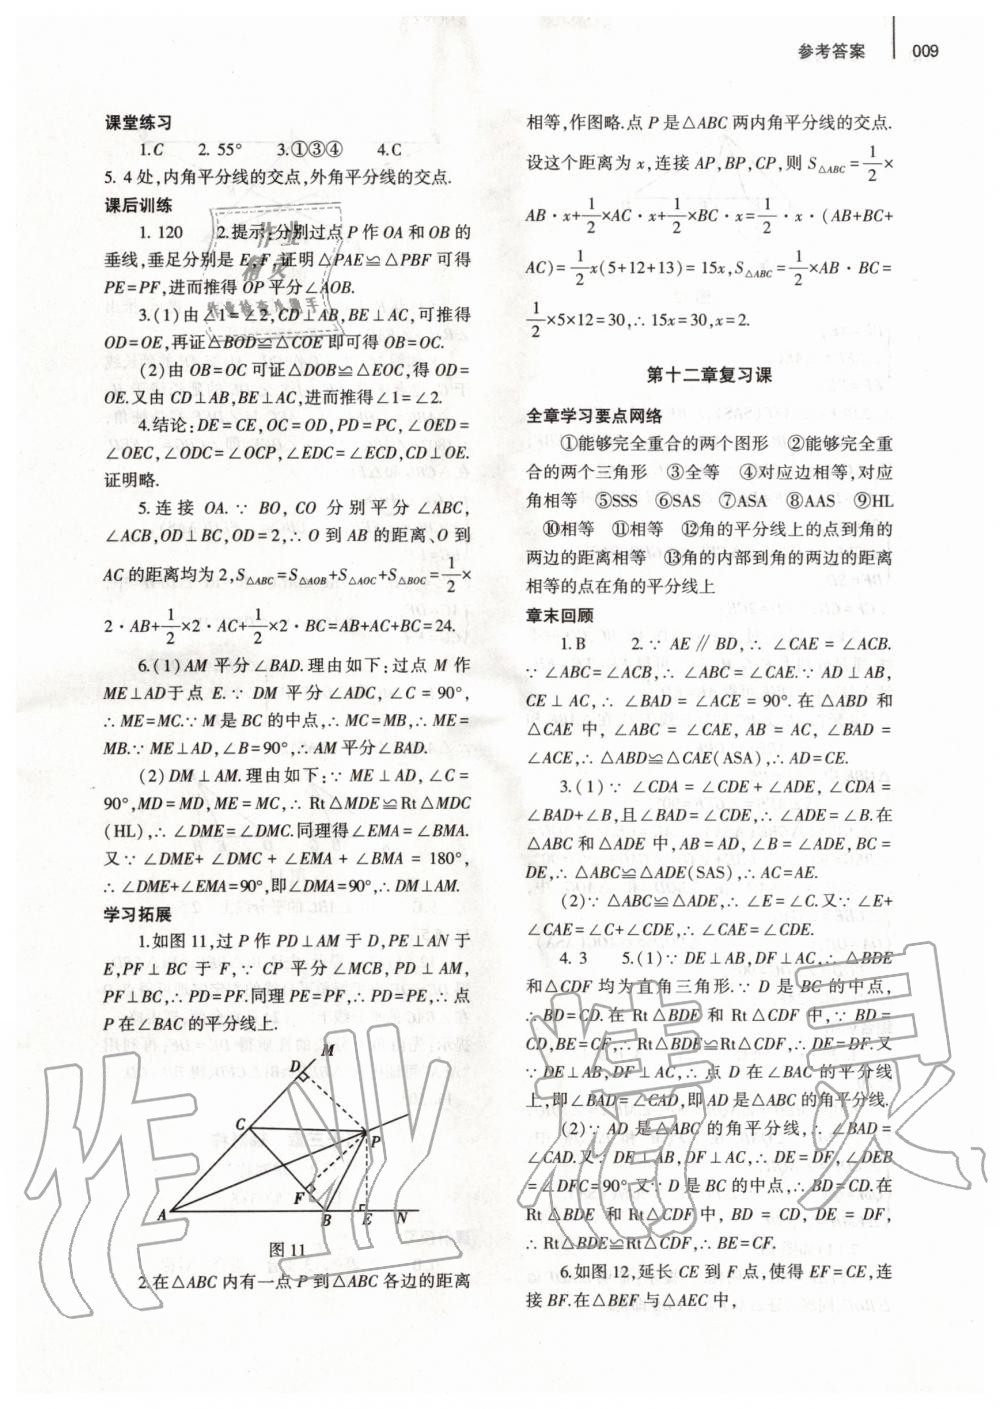 参考答案 009
课堂练习
1.C 2. 55° 3.①③④ 4.C
5. 4处,内角平分线的交点,外角平分线的交点.
课后训练
1. 120 2.提示:分别过点 P 作 OA 和 OB 的
垂线,垂足分别是 E,F,证明△PAE≌△PBF 可得
PE=PF,进而推得 OP 平分∠AOB.
3.(1)由∠1=∠2,CD⊥AB,BE⊥AC,可推得
OD=OE,再证△BOD≌△COE 即可得 OB=OC.
(2)由 OB=OC 可证△DOB≌△EOC,得 OD=
OE.又由 CD⊥AB,BE⊥AC,进而推得∠1=∠2.
4.结论:DE=CE,OC=OD,PD=PC,∠OED=
∠OEC,∠ODC=∠OCP,∠EDC=∠ECD,CD⊥OE.
证明略.
5.连接 OA.∵ BO,CO 分别平分∠ABC,
∠ACB,OD⊥BC,OD=2,∴O 到 AB 的距离、O 到
AC 的距离均为 2,S△ABC=S△AOB+S△AOC+S△BOC=1/2×
2·AB+1/2×2·AC+1/2×2·BC=AB+AC+BC=24.
6.(1)AM 平分∠BAD.理由如下:过点 M 作
ME⊥AD于点 E.∵ DM 平分∠ADC,∠C=90°,
∴ME=MC.∵M 是 BC 的中点,∴MC=MB,∴ME=
MB.∵ME⊥AD,∠B=90°,∴AM 平分∠BAD.
(2)DM⊥AM.理由如下:∵ME⊥AD,∠C=
90°,MD=MD,ME=MC,∴Rt△MDE≌Rt△MDC
(HL),∴∠DME=∠DMC.同理得∠EMA=∠BMA.
又∵∠DME+∠DMC+∠EMA+∠BMA=180°,
∴∠DME+∠EMA=90°,即∠DMA=90°,∴DM⊥AM.
学习拓展
1.如图 11,过 P 作 PD⊥AM 于 D,PE⊥AN 于
E,PF⊥BC 于 F,∵CP 平分∠MCB,PD⊥AM,
PF⊥BC,∴PD=PF.同理 PE=PF,∴PD=PE,∴点
P 在∠BAC 的平分线上.
M
D
C
P
F
A B E N
图 11
2.在△ABC 内有一点 P 到△ABC 各边的距离
相等,作图略.点 P 是△ABC 两内角平分线的交点.
设这个距离为 x,连接 AP,BP,CP,则 S△ABC=1/2×
AB·x+1/2×AC·x+1/2×BC·x=1/2·x·(AB+BC+
AC)=1/2x(5+12+13)=15x,S△ABC=1/2×AB·BC=
1/2×5×12=30,∴15x=30,x=2.
第十二章复习课
全章学习要点网络
①能够完全重合的两个图形 ②能够完全重
合的两个三角形 ③全等 ④对应边相等,对应
角相等 ⑤SSS ⑥SAS ⑦ASA ⑧AAS ⑨HL
⑩相等 ⑪相等 ⑫角的平分线上的点到角的
两边的距离相等 ⑬角的内部到角的两边的距离
相等的点在角的平分线上
章末回顾
1.B 2.∵AE∥BD,∴∠CAE=∠ACB.
∵∠ABC=∠ACB,∴∠ABC=∠CAE.∵AD⊥AB,
CE⊥AC,∴∠BAD=∠ACE=90°.在△ABD 和
△CAE 中,∠ABC=∠CAE,AB=AC,∠BAD=
∠ACE,∴△ABD≌△CAE(ASA),∴AD=CE.
3.(1)∵∠CDA=∠CDE+∠ADE,∠CDA=
∠BAD+∠B,且∠BAD=∠CDE,∴∠ADE=∠B.在
△ABC 和△ADE 中,AB=AD,∠B=∠ADE,BC=
DE,∴△ABC≌△ADE(SAS),∴AC=AE.
(2)∵△ABC≌△ADE,∴∠E=∠C.又∵∠E+
∠CAE=∠C+∠CDE,∴∠CAE=∠CDE.
4. 3 5.(1)∵DE⊥AB,DF⊥AC,∴△BDE
和△CDF 均为直角三角形.∵D 是 BC 的中点,
∴BD=CD.在 Rt△BDE 和 Rt△CDF 中,∵BD=
CD,BE=CF,∴Rt△BDE≌Rt△CDF,∴DE=DF.又
∵DE⊥AB,DF⊥AC,∴点 D 在∠BAC 的平分线
上,即∠BAD=∠CAD,即 AD 是△ABC 的角平分线.
(2)∵AD 是△ABC 的角平分线,∴∠BAD=
∠CAD.又∵DE⊥AB,DF⊥AC,∴DE=DF,∠DEB
=∠DFC=90°.又∵D 是 BC 的中点,∴BD=CD.在
Rt△BDE 和 Rt△CDF 中,BD=CD,DE=DF,
∴Rt△BDE≌Rt△CDF,∴BE=CF.
6.如图 12,延长 CE 到 F 点,使得 EF=CE,连
接 BF.在△BEF 与△AEC 中,
作业精灵